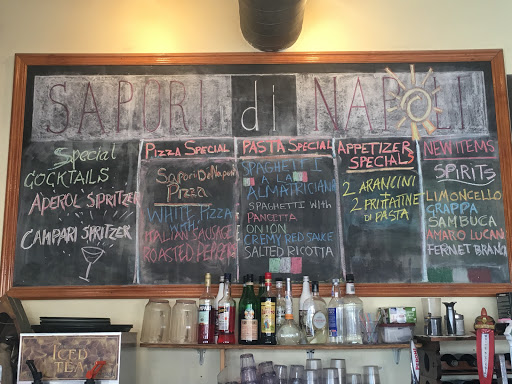 SAPORI di NAPOLI
Special
COCKTAILS
APEROL SPRITZER
CAMPARI SPRITZER
PIZZA SPECIAL
Sapori Di Napoli
Pizza
WHITE PIZZA
WITH
ITALIAN SAUSAGE
ROASTED PEPPERS
PASTA SPECIAL
SPAGHETTI
A LA
ALMATRICIANA
SPAGHETTI WITH
PANCETTA
ONION
CREMY RED SAUCE
SALTED RICOTTA
APPETIZER
SPECIALS
2 ARANCINI
2 FRITTATINE
DI PASTA
NEW ITEMS
SPIRITS
LIMONCELLO
GRAPPA
SAMBUCA
AMARO LUCANO
FERNET BRANCA
ICED
TEA